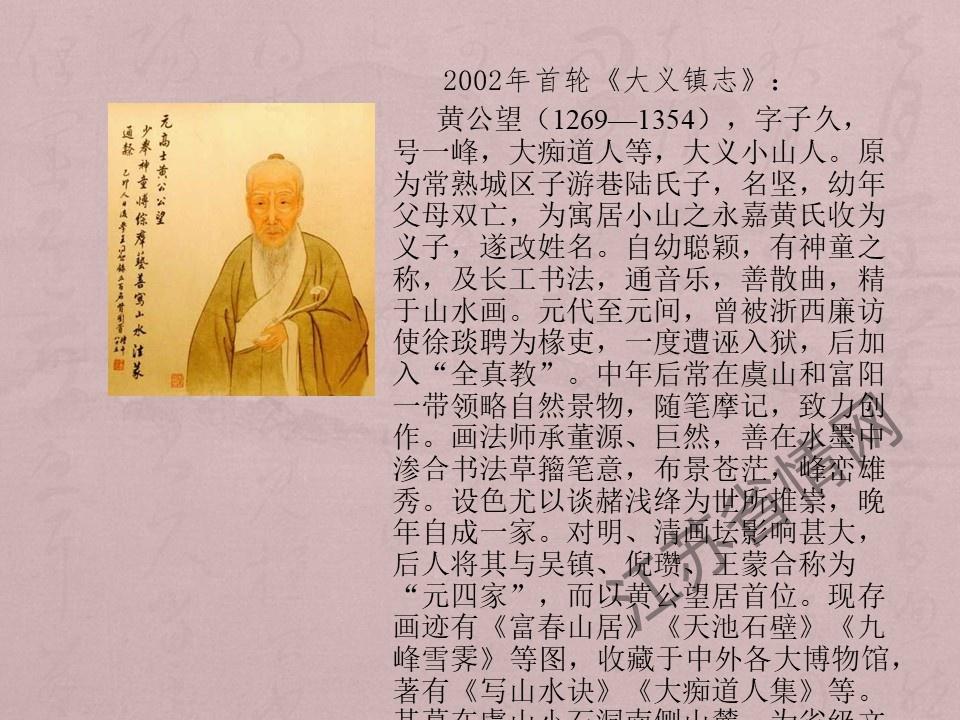 2002年首轮《大义镇志》：
黄公望（1269—1354），字子久，
号一峰，大痴道人等，大义小山人。原
为常熟城区子游巷陆氏子，名坚，幼年
父母双亡，为寓居小山之永嘉黄氏收为
义子，遂改姓名。自幼聪颖，有神童之
称，及长工书法，通音乐，善散曲，精
于山水画。元代至元间，曾被浙西廉访
使徐琰聘为椽吏，一度遭诬入狱，后加
入“全真教”。中年后常在虞山和富阳
一带领略自然景物，随笔摩记，致力创
作。画法师承董源、巨然，善在水墨中
渗合书法草籀笔意，布景苍茫，峰峦雄
秀。设色尤以谈赭浅绛为世所推崇，晚
年自成一家。对明、清画坛影响甚大，
后人将其与吴镇、倪瓒、王蒙合称为
“元四家”，而以黄公望居首位。现存
画迹有《富春山居》《天池石壁》《九
峰雪霁》等图，收藏于中外各大博物馆，
著有《写山水诀》《大痴道人集》等。
其墓在虞山小石洞南侧山麓，为省级文
元高士黄公公望
少举神童博综群艺善写山水法篆
江苏省情网